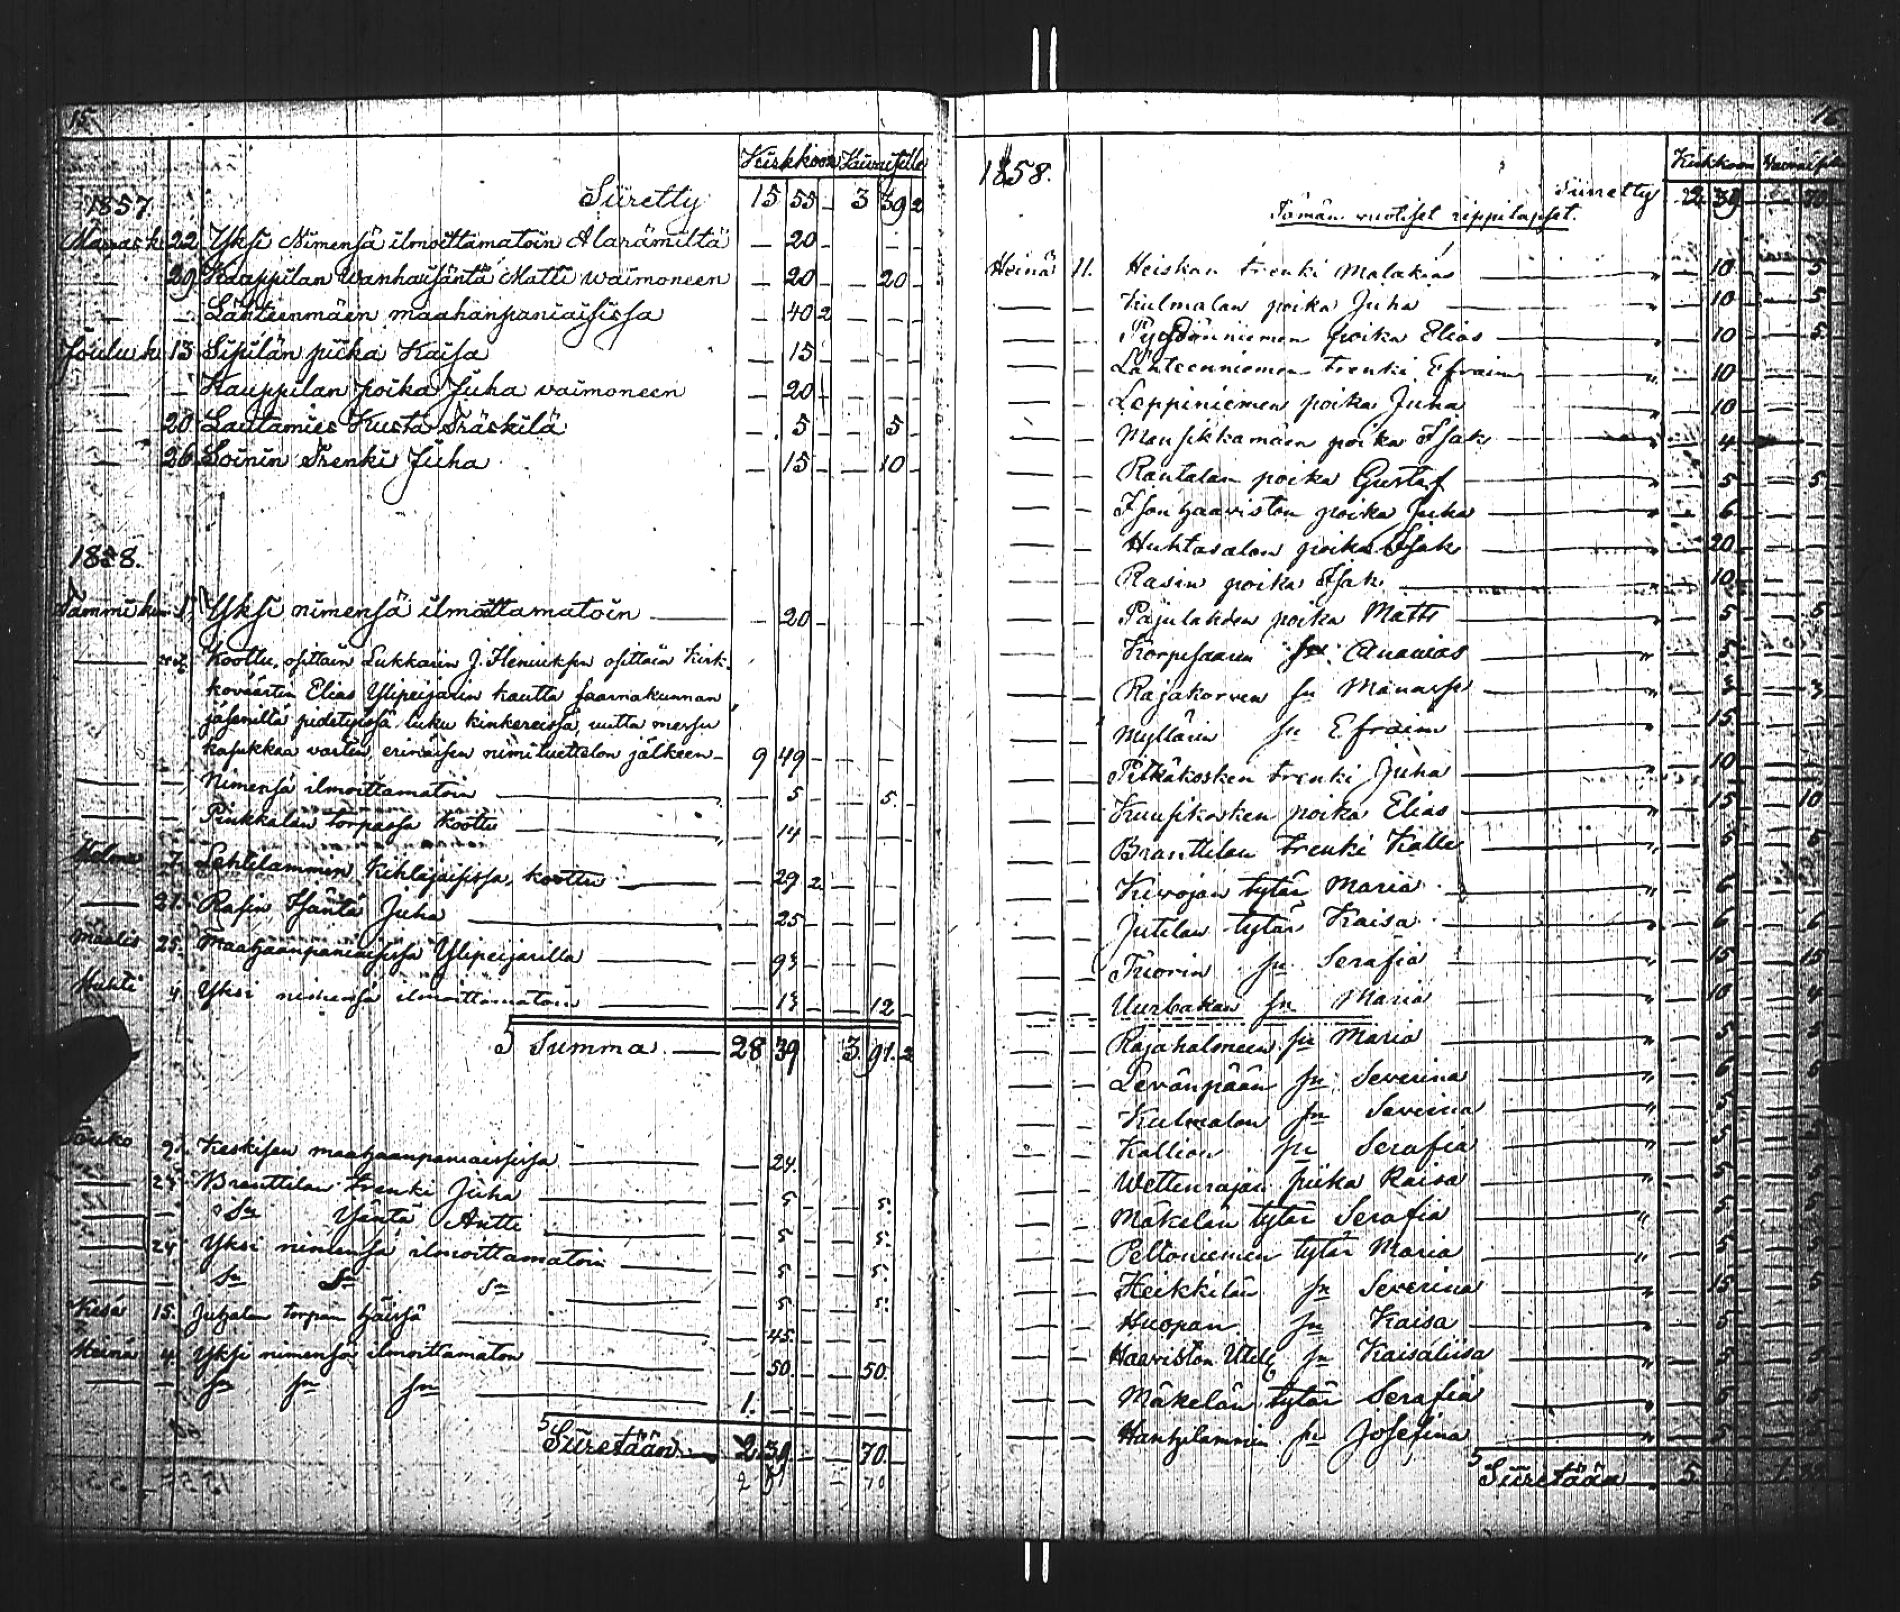 15.
Kirkkoon Waivaisille
1857
Siiretty 15 55 - 3 39 2
Marrask. 22 Yksi Nimensä ilmoittamatoin Alarämiltä - 20 - - - -
- 29 Kauppilan Wanhaisäntä Matti waimoneen - 20 - - 20 -
- - Lähteenmäen maahanpaniaisissa - 40 2 - - -
Jouluk. 13 Sipilän piika Kaisa - 15 - - - -
- - Kauppilan poika Juha vaimoneen - 20 - - - -
- 20 Lautamies Kusta Träskilä - 5 - - 5 -
- 26 Soinin Trenki Juha - 15 - - 10 -
1858.
Tammikuu 1 Yksi nimensä ilmoittamatoin - 20 - - - -
Koottu, osittain Lukkarin J. Heniuksen osittain Kirk-
kovärtin Elias Ylipeijarin kautta saarnakunnan
jäseniltä pidetyissä luku kinkereissä, uutta messu
kasukkaa varten, erinäisen nimiluettelon jälkeen - 9 49 - - - -
- - Nimensä ilmoittamatoin - 5 - - 5 -
- - Pinkkalan torpassa koottu - 14 - - - -
Helmi 7. Lehtilammin Kihlajaisissa, koottu - 29 2 - - -
- 21. Rasin Isäntä Juha - 25 - - - -
Maalis 25. Maahaanpaniaisissa Ylipeijarilla - 93 - - - -
Huhti 4 Yksi nimensä ilmoittamatoin - 13 - - 12 -
Summa - 28 39 3 91 2
Touko 9. Keskisen maahaanpaniaisissa - 24.
- 23 Branttilan trenki Juha - 5 - - 5.
- - Dn Isäntä Antti - 5 - - 5.
- 24 Yksi nimensä ilmoittamatoin - 5 - - 5.
- - Dn Dn Dn - 5 - - 5.
Kesä 15. Juhalan torpan häissä - 45. - - - -
Heinä 4. Yksi nimensä ilmoittamaton - 50. - - 50.
- - Dn Dn Dn 1. - - - - -
Siiretään 2. 39. - - 70. -
16
1858.
Kirkkoon Waivaisille
Siirretty 2 39 - - 70 -
Tämän vuotiset rippilapset.
Heinä 11. Heiskan trenki Malakias - 10 - - 5
- - Kulmalan poika Juha - 10 - - 5
Pyydönniemen poika Elias - 10 - - 5
- - Lähteenniemen trenki Efraim - 10 - - -
- - Leppiniemen poika Juha - 10 - - -
- - Mansikkamäen poika Isak - 4 - - -
- - Rantalan poika Gustaf - 5 - - 5
- - Ison haaviston poika Juha - 6 - - -
- - Huhtasalon poika Isak - 20 - - -
- - Rasin poika Isak - 10 - - -
- - Pajulahden poika Matti - 5 - - 5
- - Korpisaarin Dn Ananias - 5 - - -
- - Rajakorven Dn Manasse - 3 - - 3
- - Myllärin Dn Efraim - 15 - - -
- - Pitkäkosken trenki Juha - 10 - - -
- - Kuusikosken poika Elias - 15 - - 10
- - Branttilan trenki Kalle - 5 - - 5
- - Kivojan tytär Maria - 6 - - -
- - Jutilan tytär Kaisa - 6 - - 6
- - Tuorin Dn Serafia - 15 - - 15
- - Uurbakan Dn Maria - 10 - - 4
- - Rajahalmeen Dn Maria - 5 - - 5
- - Levänpään Dn Severina - 6 - - 5
- - Kulmalan Dn Severina - 5 - - 5
- - Kallion Dn Serafia - 5 - - 5
- - Wettenrajan piika Kaisa - 5 - - 5
- - Mäkelän tytär Serafia - 5 - - 5
- - Peltoniemen tytär Maria - 5 - - 5
- - Heikkilän Dn Severina - 15 - - 5
- - Huopan Dn Kaisa - 5 - - -
- - Haaviston Dn Kaisaliisa - 5
- - Mäkelän tytär Serafia - 5 - - 5
- - Dn Josefina - 5
Siiretään 5